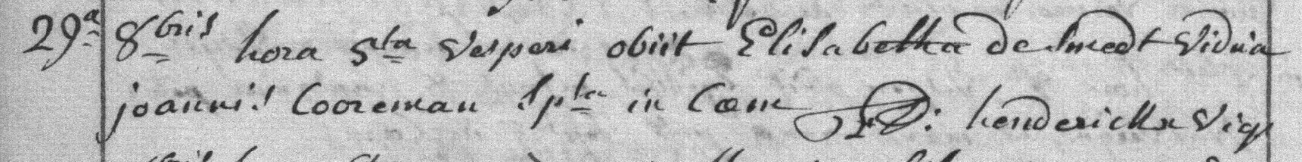 29a 8bris hora 5ta vesperi obiit Elisabetha de Smedt vidua
joannis Cooreman Spta in Coem henderickx